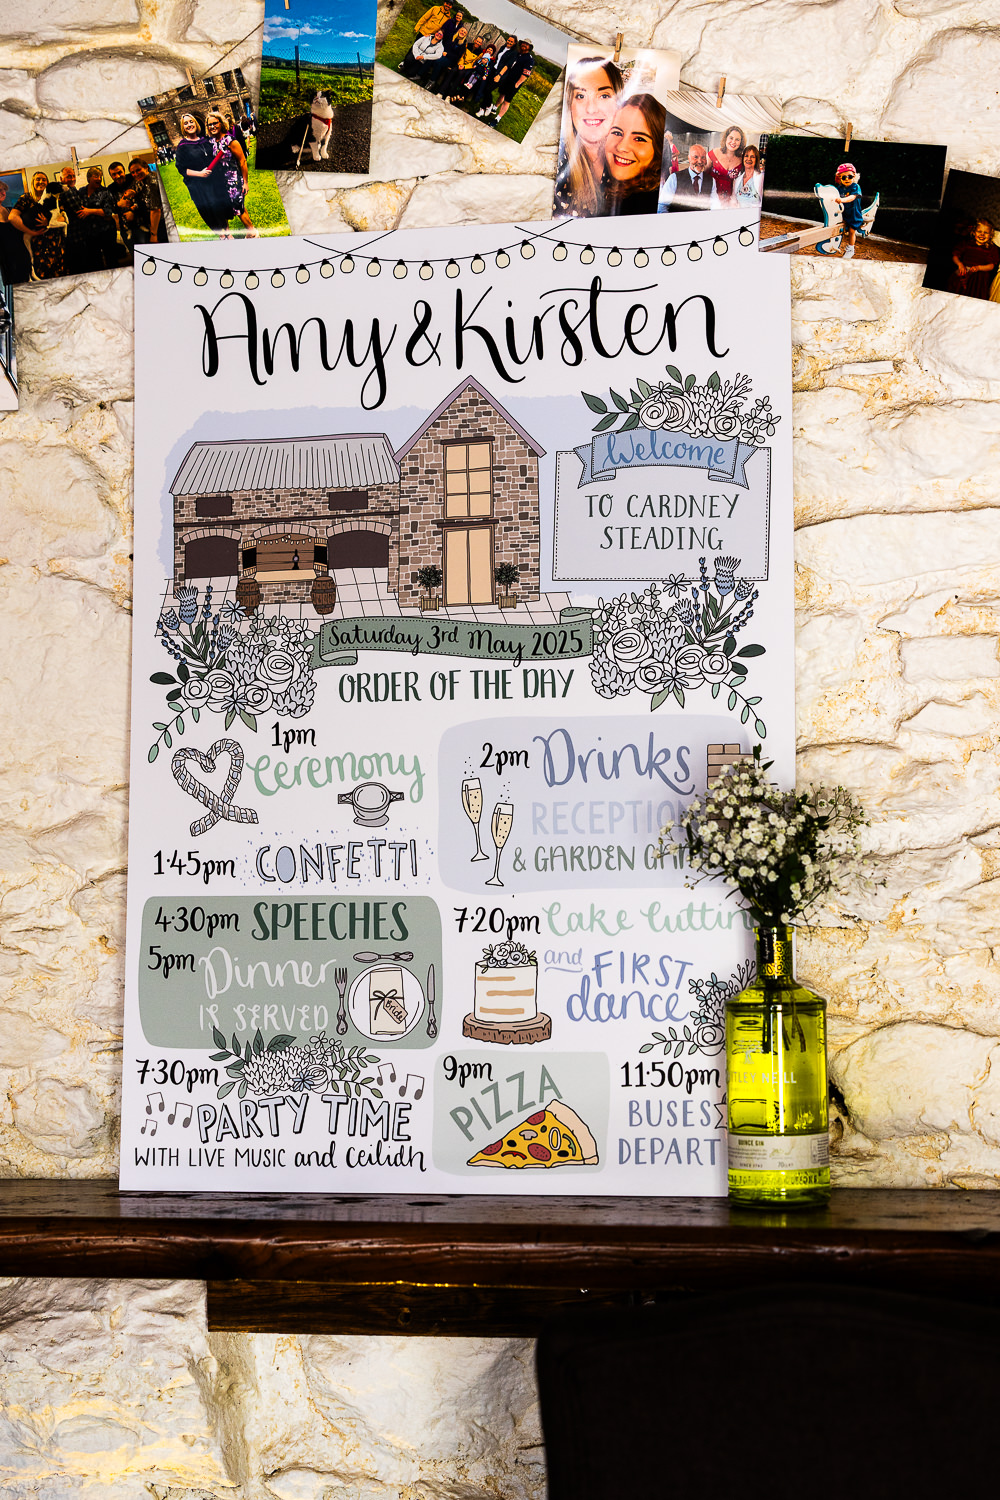 Amy & Kirsten
Welcome
TO CARDNEY
STEADING
Saturday 3rd May 2025
ORDER OF THE DAY
1pm
Ceremony
1:45pm CONFETTI
2pm Drinks
RECEPTION
& GARDEN
4:30pm SPEECHES
5pm Dinner
IS SERVED
7:20pm Cake Cuttin
and FIRST
dance
7:30pm
PARTY TIME
WITH LIVE MUSIC and ceilidh
9pm
PIZZA
11:50pm
BUSES
DEPART
TLEY NEILL
QUINCE GIN